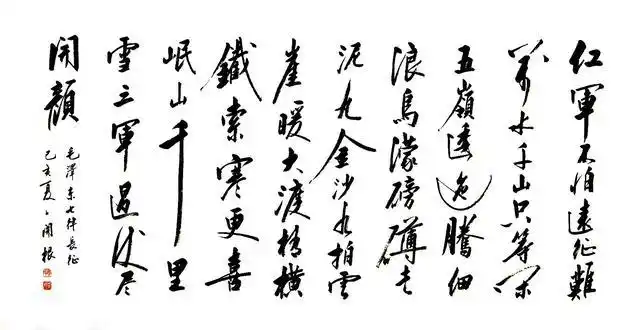 紅軍不怕遠征難
萬水千山只等閑
五嶺逶迤騰細
浪烏濛磅礴走
泥丸金沙水拍雲
崖暖大渡橋橫
鐵索寒更喜
岷山千里
雪三軍過後盡
開顏
毛澤東七律長征
己亥夏開根